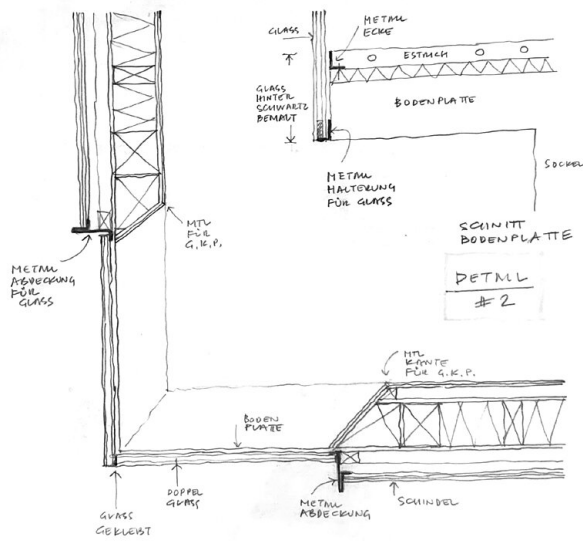 GLASS
METALL
ECKE
ESTRICH
GLASS
HINTER
SCHWARTZ
BEMALT
BODENPLATTE
METALL
HALTERUNG
FÜR GLASS
SOCKEL
SCHNITT
BODENPLATTE
DETAIL
#2
MTL
FÜR
G.K.P.
METALL
ABDECKUNG
FÜR
GLASS
MTL
KANTE
FÜR G.K.P.
BODEN
PLATTE
GLASS
GEKLEIBT
DOPPEL
GLASS
METALL
ABDECKUNG
SCHINDEL